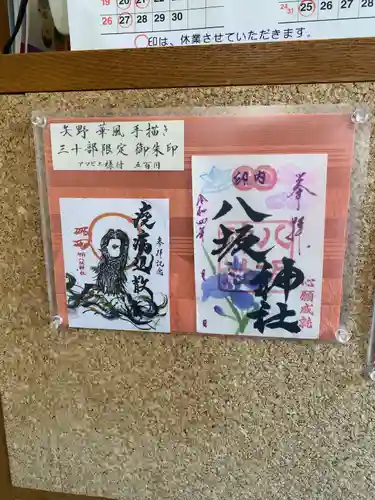 19 20 21 22 23
26 27 28 29 30
24/31 25 26 27 28 29 30
○印は、休業させていただきます。
矢野 華風 手描き
三十部限定 御朱印
アマビエ様付 五百円
疫病退散
参拝記念
奉拝
八坂神社
心願成就